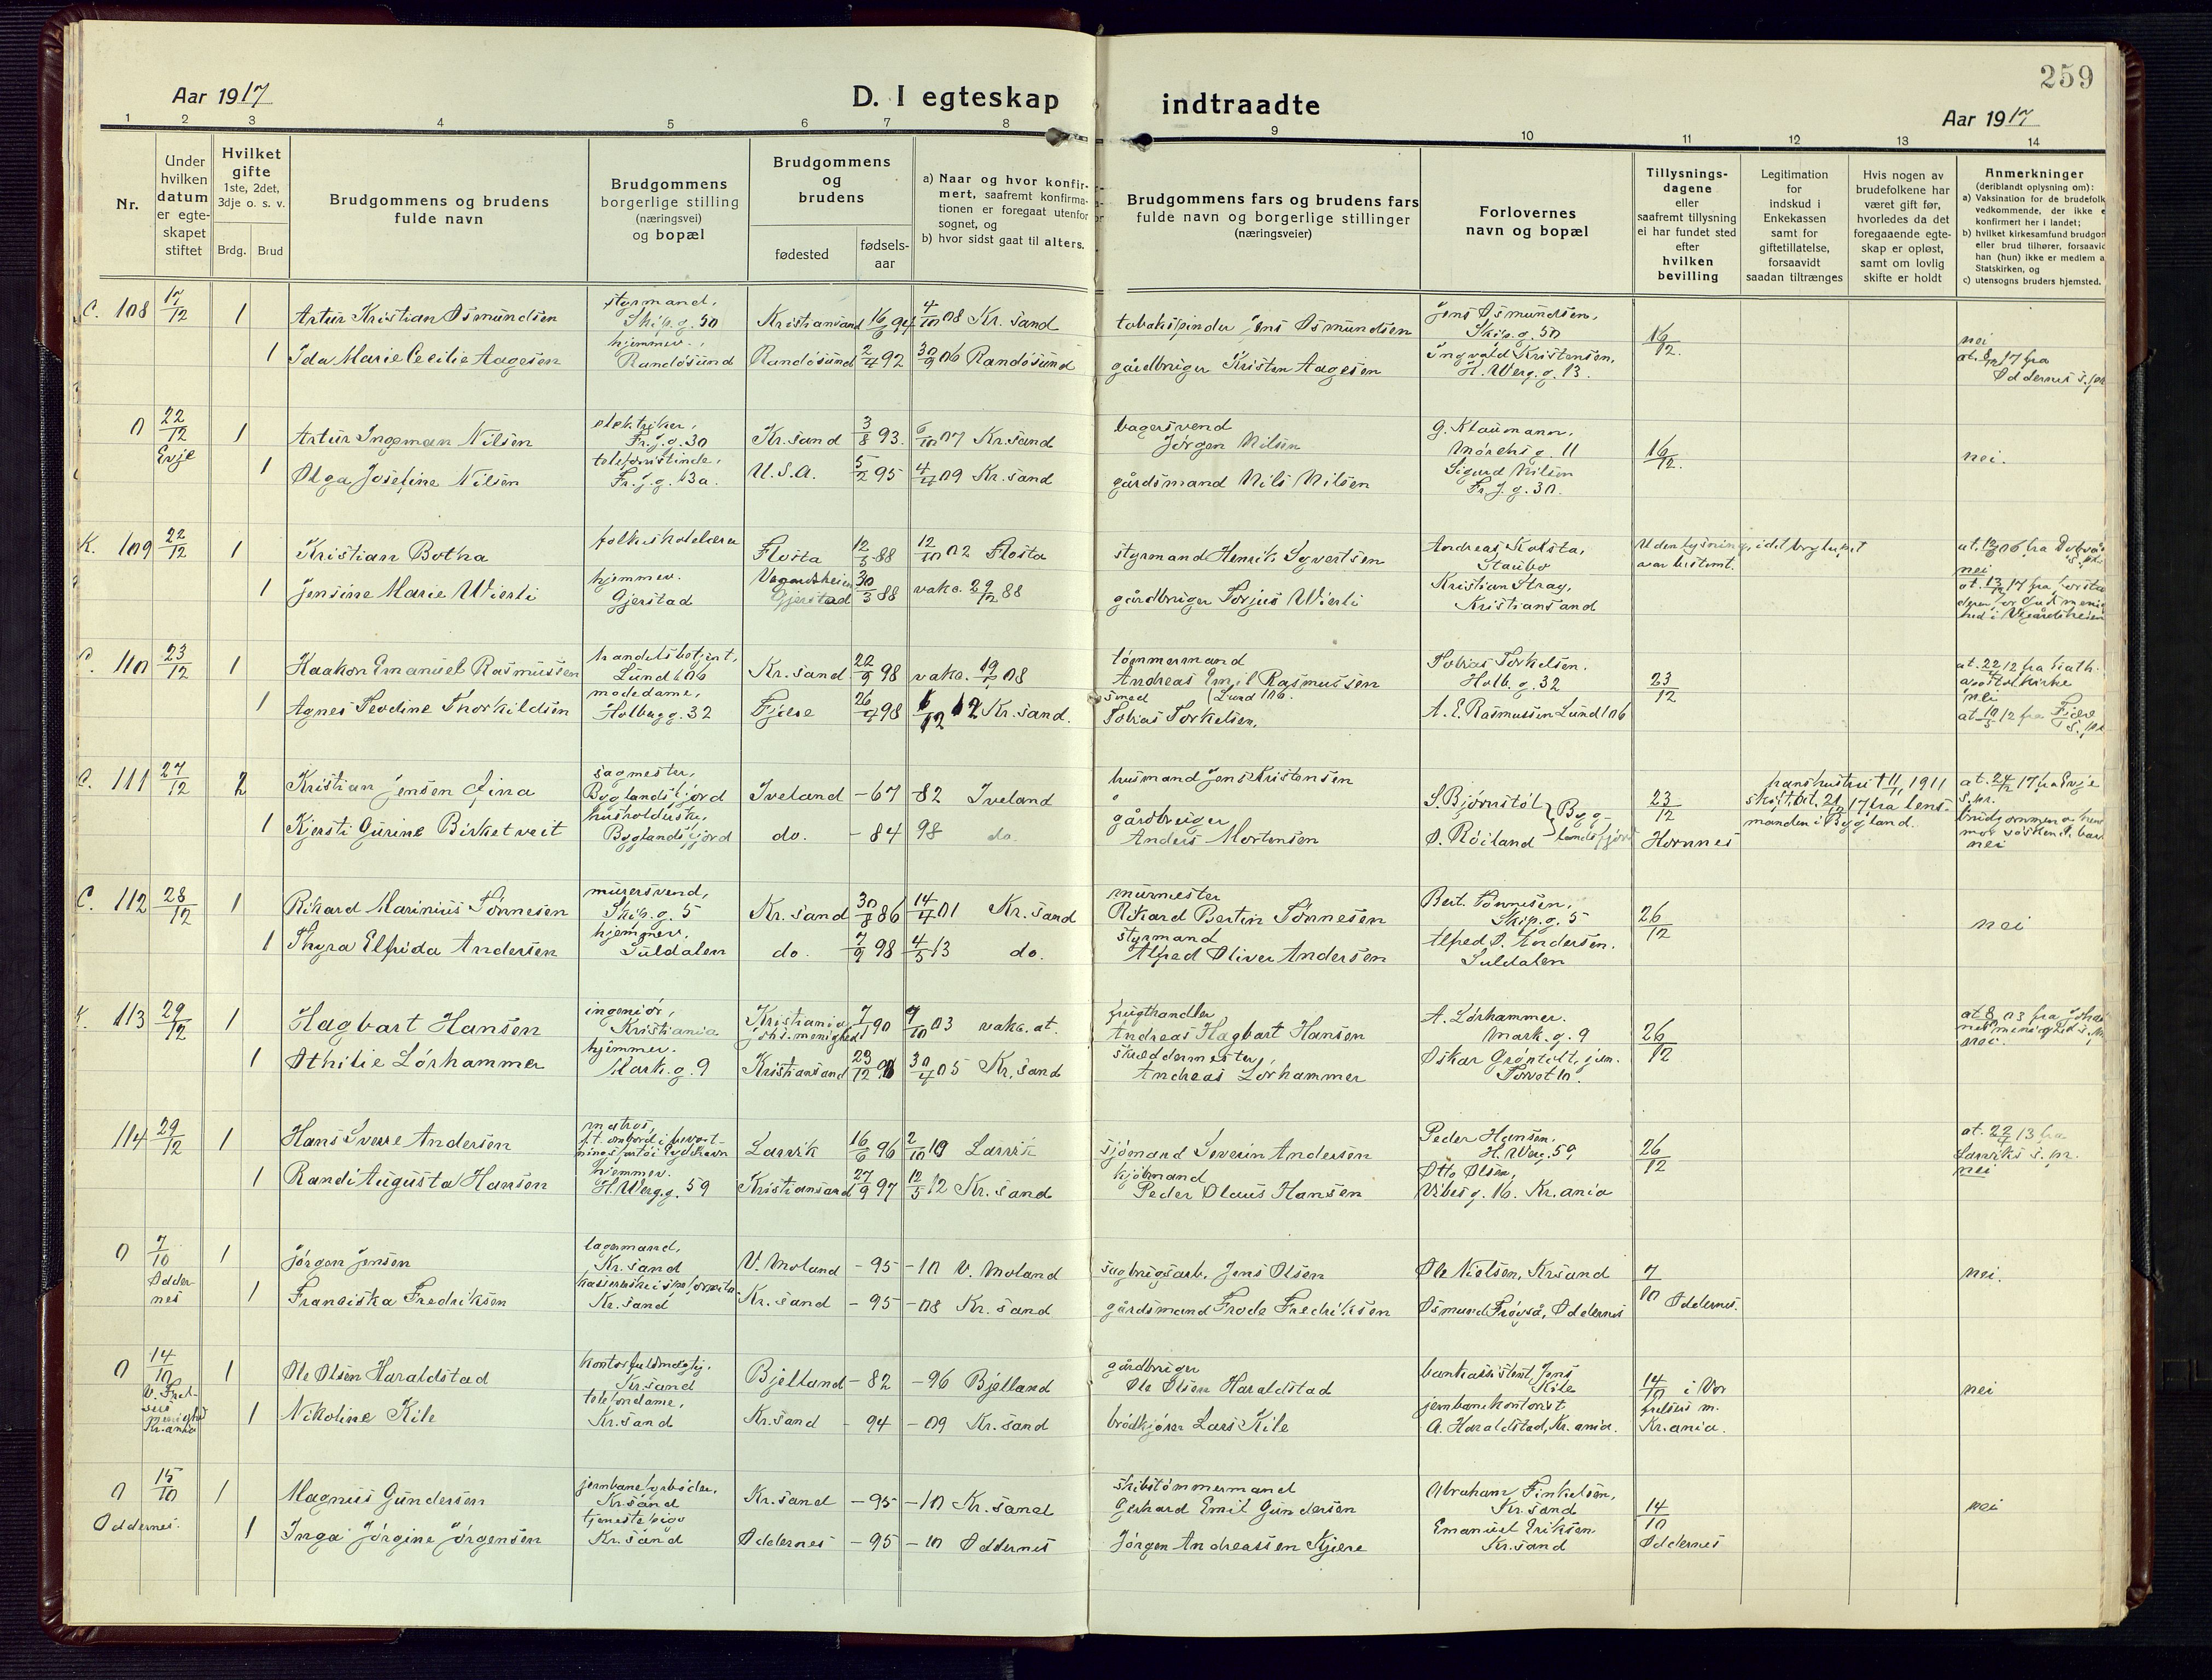 259
Aar 1917
D. I egteskap
indtraadte
Aar 1917
1 2 3 4 5 6 7 8 9 10 11 12 13 14
Nr.
Under hvilken datum er egteskapet stiftet
Hvilket gifte 1ste, 2det, 3dje o. s. v.
Brdg. Brud
Brudgommens og brudens fulde navn
Brudgommens borgerlige stilling (næringsvei) og bopæl
Brudgommens og brudens
fødested
fødsels-aar
a) Naar og hvor konfirmert, saafremt konfirmationen er foregaat utenfor sognet, og
b) hvor sidst gaat til alters.
Brudgommens fars og brudens fars fulde navn og borgerlige stillinger (næringsveier)
Forlovernes navn og bopæl
Tillysningsdagene eller saafremt tillysning ei har fundet sted efter hvilken bevilling
Legitimation for indskud i Enkekassen samt for giftetillatelse, forsaavidt saadan tiltrænges
Hvis nogen av brudefolkene har været gift før, hvorledes da det foregaaende egteskap er opløst, samt om lovlig skifte er holdt
Anmerkninger
(deriblandt oplysning om):
a) Vaksination for de brudefolk vedkommende, der ikke e konfirmert her i landet;
b) hvilket kirkesamfund brudgom eller brud tilhører, forsaavid han (hun) ikke er medlem a Statskirken, og
c) utensogns bruders hjemsted.
C. 108 17/12 1 Artur Kristian Osmundsen styrmand, Skip.g. 50 Kristiansand 16/9 94 4/10 08 Kr. sand tobakspinder Jens Osmundsen Jens Osmundsen, Skip.g. 50 16/12. nei
1 Ida Marie Cecilie Aagesen hjemmev., Randøsund Randøsund 2/4 92 30/9 06 Randøsund gårdbruger Kristen Aagesen Ingvald Kristensen, H. Werg.g. 13. Oddernes
0 22/12 Evje 1 Artur Ingeman Nilsen elektriker, Fr.j.g. 30 Kr.sand 3/8 93. 6/10 07 Kr.sand bagersvend Jørgen Nilsen G. Klaumann, Mørchs g. 11 16/12. nei.
1 Olga Josefine Nilsen telefonistinde, Fr.j.g. 13a. U.S.A. 5/2 95 4/4 09 Kr.sand gårdsmand Nils Nilsen Sigurd Nilsen Fr.J.g. 30.
K. 109 22/12 1 Kristian Botha folkeskolelærer Flosta 12/5 88 12/10 02 Flosta styrmand Henrik Syvertsen Andreas Kolsta, Staubø
1 Jensine Marie Wierli hjemmev. Gjerstad Vegaardsheien Gjerstad 30/3 88 vaks. 29/12 88 gårdbruger Torjus Wierli Kristian Stray, Kristiansand nei
110 23/12 1 Haakon Emanuel Rasmussen handelsbetjent, Lund 106 Kr. sand 22/9 98 vaks. 19/6 08 tømmermand Andreas Emil Rasmussen Lund 106. Tobias Torkelsen. Holb.g. 32 23/12 at. 22/12 fra kath. apostol. kirke
1 Agnes Teodine Thorkildsen modedame, Holbergg. 32 Fjelse 26/4 98 12 Kr.sand. smed Tobias Torkelsen, A. E. Rasmussen Lund 106 nei
C. 111 27/12 2 Kristian Jensen sagmester, Byglandsfjord Iveland - 67 -82 Iveland husmand Jens Kristensen S. Bjørnstøl Byglandsfjord 23/12 hans hustru † 11/7 1911 at. 24/12 17 fra Evje s.pr.
1 Kjersti Gurine Birketveit husholderske, Byglandsfjord do. - 84 98 do. gårdbruger Anders Mortensen O. Røiland Hornnes manden i Bygland. nei
C. 112 28/12 1 Rikard Marinius Tønnesen murersvend, Skip.g. 5 Kr.sand 30/8 86 14/4 01 Kr.sand murmester Rikard Bertin Tønnesen Bert. Tønnesen, Skip.g. 5 26/12 nei
1 Thyra Elfrida Andersen hjemmev. Suldalen do. 7/9 98 4/5 13 do. styrmand Alfred Oliver Andersen Alfred O. Andersen. Suldalen
K. 113 29/12 1 Hagbart Hansen ingeniør, Kristiania Kristiania joh.s menighet 90 03 vaks. at. frugthandler Andreas Hagbart Hansen A. Lørhammer. Mark.g. 9 26/12
1 Othilie Lørhammer hjemmev. Mark.g. 9 Kristiansand 30/4 05 Kr.sand skreddermester, Andreas Lørhammer Oskar Grøntoft, jun. Torvet 10. nei.
114 29/12 1 Hans Sverre Andersen matros, Larvik 16/6 96 Larvik sjømand Severin Andersen Peder Hansen. H. Werg. 59 26/12 at. 22/4 13 fra Larviks s.pr.
1 Randi Augusta Hansen hjemmev. H. Werg.g. 59 Kristiansand 27/9 97 12/5 12 Kr.sand kjøbmand Peder Olaus Hansen Otto Olsen, Vibesg. 16. Kr.ania nei
0 7/10 Oddernes 1 Jørgen Jensen lagermand, Kr.sand V. Moland - 95 -10 V. Moland sagbrugsarb. Jens Olsen Ole Nielsen, Krsand 7/10 Oddernes. nei.
1 Franciska Fredriksen Kr.sand Kr.sand - 95 -08 Kr.sand gårdsmand Frode Fredriksen Osmund Frøyså, Oddernes
0 14/10 V. Frelsers menighed Kr.ania 1 Ole Olsen Haraldstad kontorfuldmægtig. Kr.sand Bjelland - 82 -96 Bjelland gårdbruger Ole Olsen Haraldstad bankassistent Jens Kile 14/10 i Vor frelsers m. Kr.ania. nei
1 Nikoline Kile telefondame, Kr.sand Kr.sand - 94 -09 Kr.sand brødkjører Lars Kile jernbanekontorist A. Haraldstad, Kr.ania.
0 15/10 Oddernes. 1 Magnus Gundersen jernbanefyrbøder, Kr.sand Kr.sand - 95 -10 Kr.sand skibstømmermand Gerhard Emil Gundersen Abraham Finkelsen, Kr.sand 14/10 Oddernes nei
1 Inga Jørgine Jørgensen tjenestepige Kr.sand Oddernes - 95 -10 Oddernes Jørgen Andreassen Kjære Emanuel Eriksen. Kr.sand